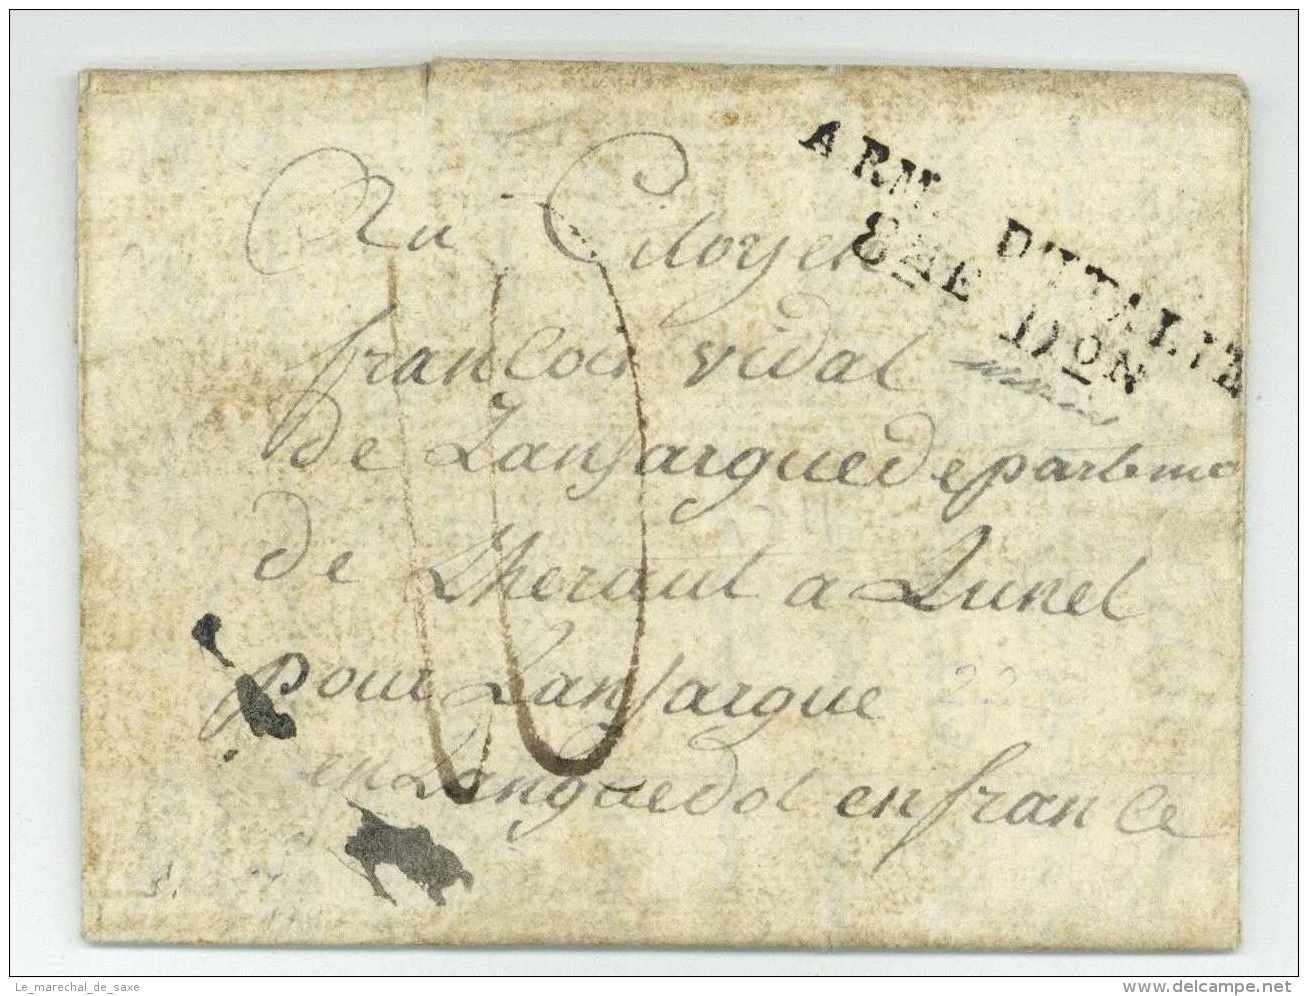 ARM. D'ITALIE
8ME DON
Au Citoyen
francois vidal
de Lansargue departeme
de Lheraul a Lunel
pour Lansargue
en Languedol en france
10
22
Le_marechal_de_saxe
www.delcampe.net